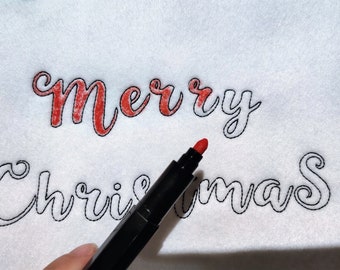 Merry
ChristmaS